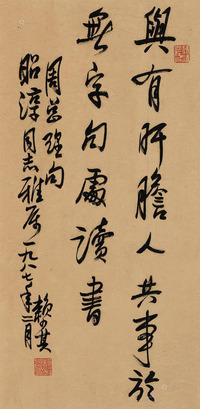 與有肝膽人共事於
無字句處讀書
周总理句
昭淳同志雅属一九八七年二月
赖少其